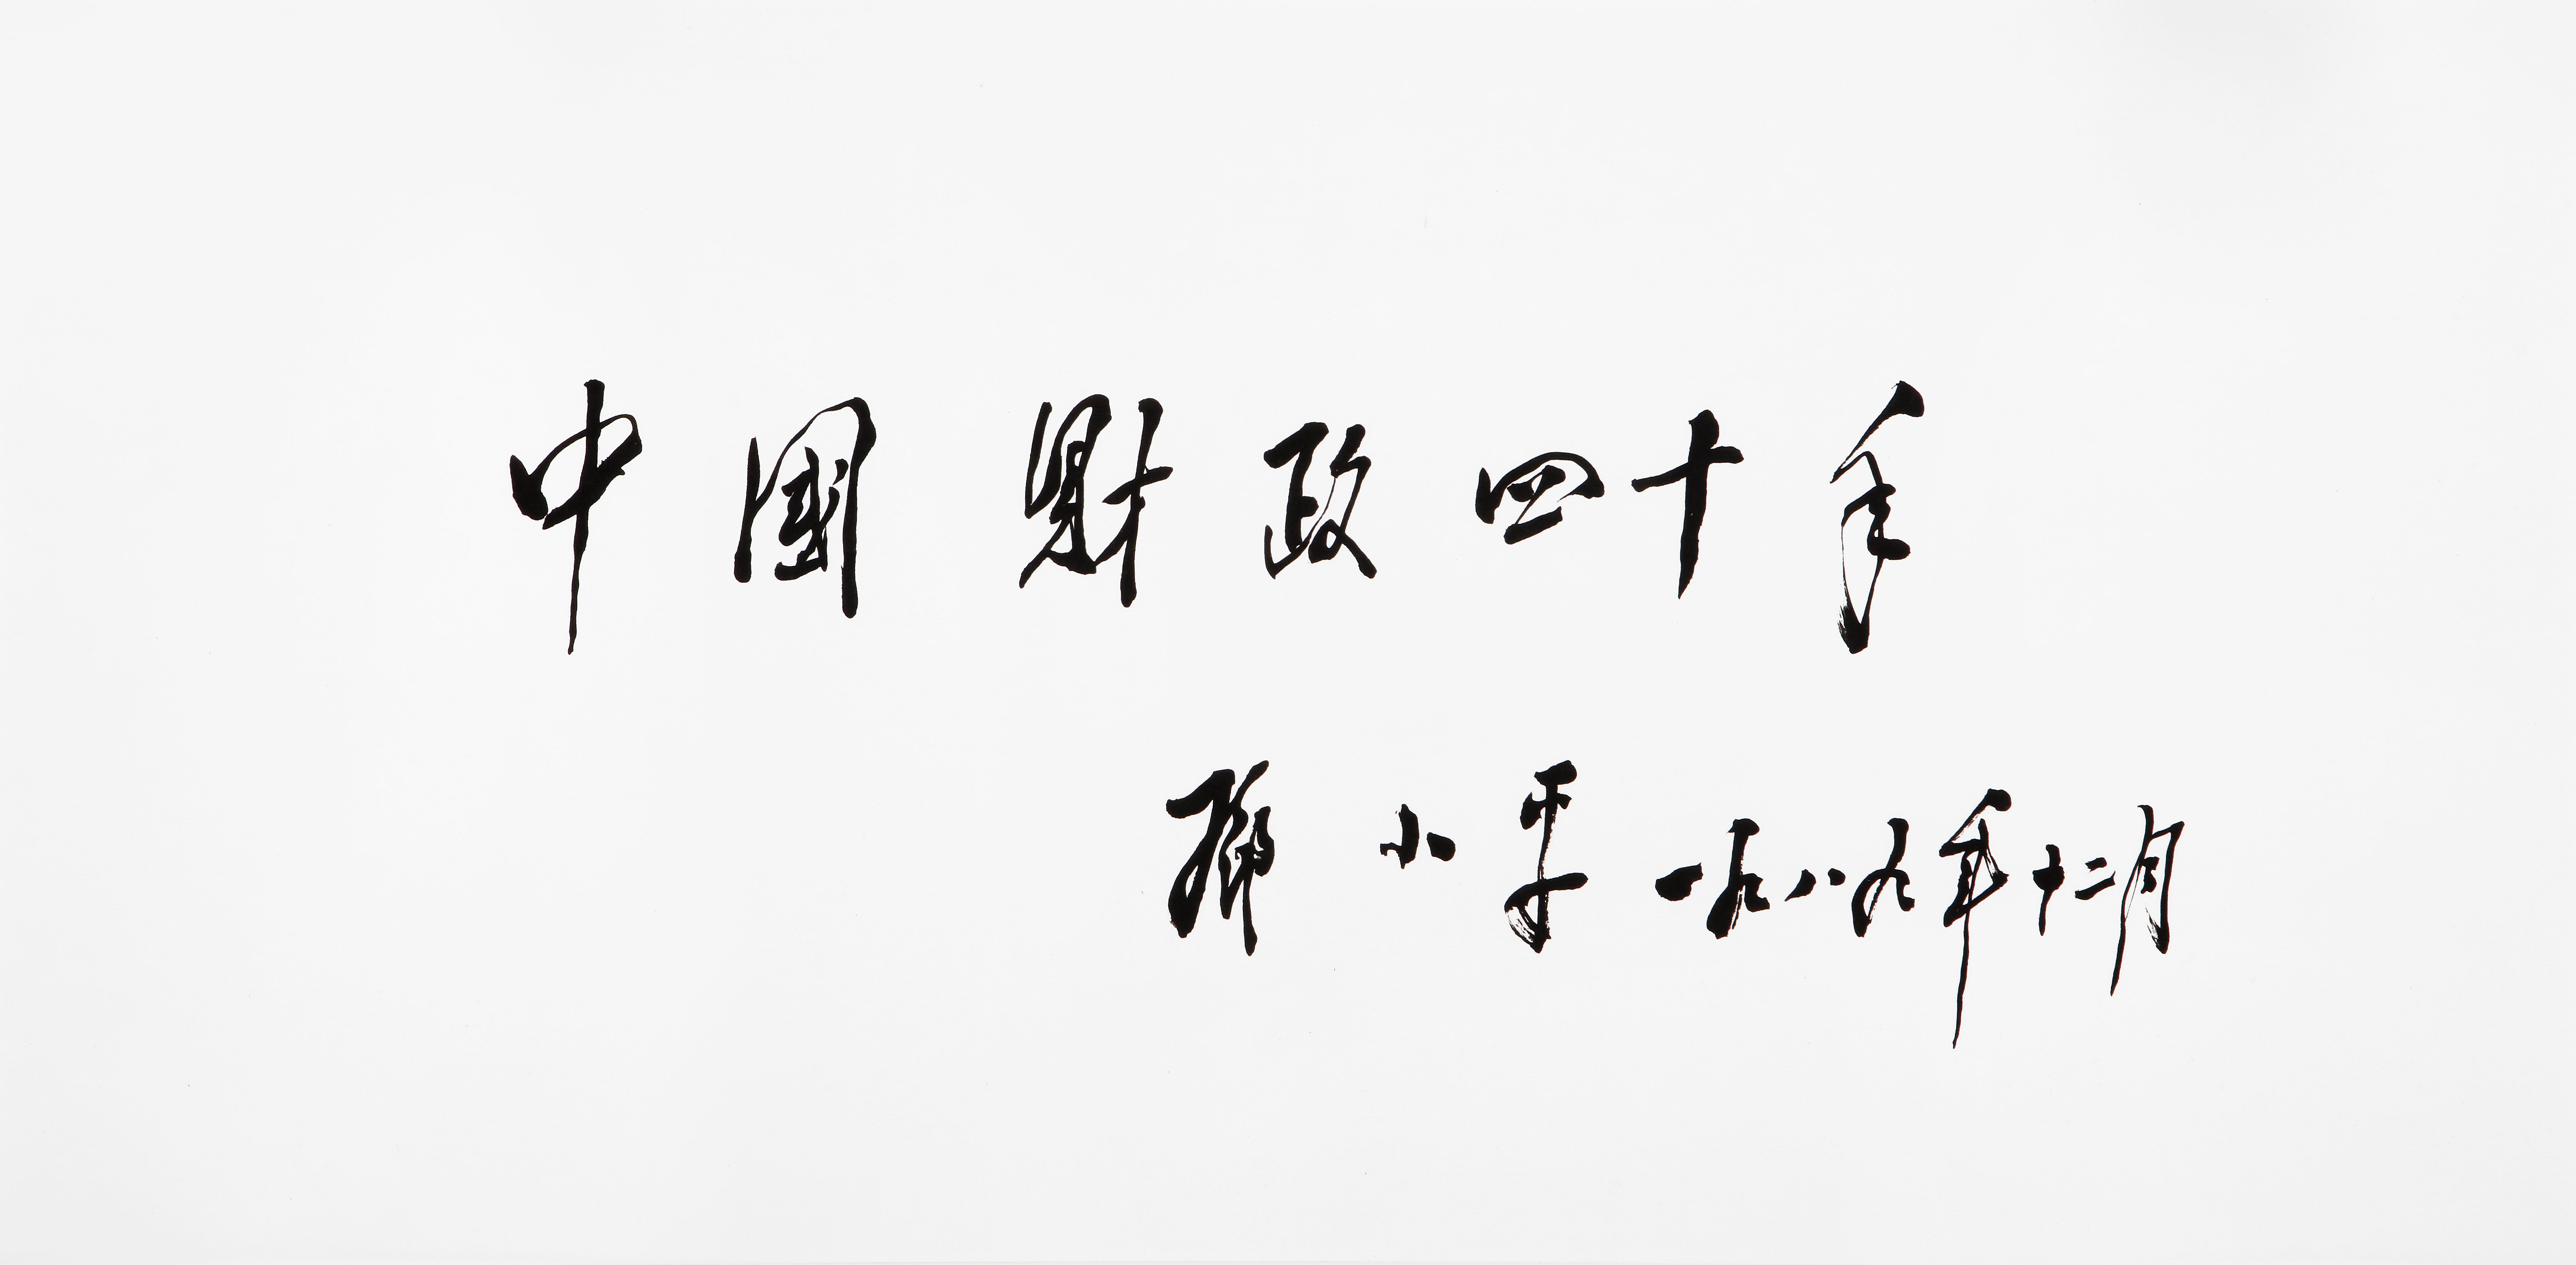 中國財政四十年
鄧小平 一九八九年十二月